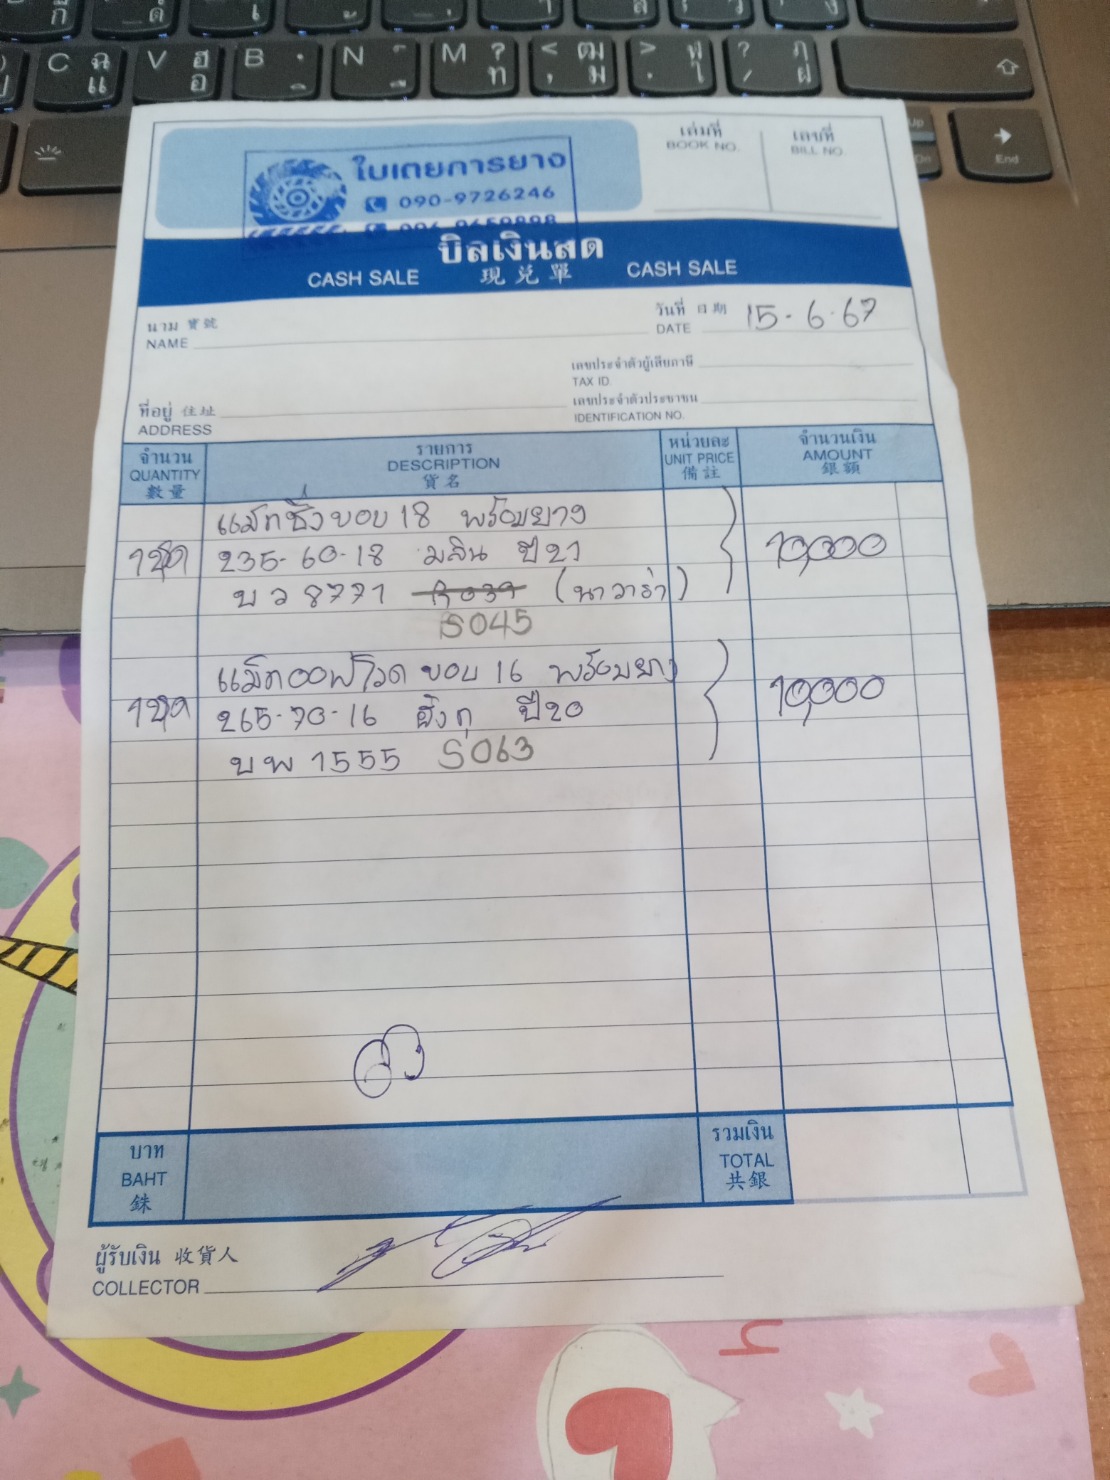 C ฉ แ V ฮ อ B N M ? ท < ฒ , ม > ฬ . ใ ? ฦ / ฝ
End
ใบเตยการยาง
090-9726246
เล่มที่
BOOK NO.
เลขที่
BILL NO.
บิลเงินสด
CASH SALE 現兑單 CASH SALE
นาม 寶號
NAME
วันที่ 日期
DATE 15-6-67
เลขประจำตัวผู้เสียภาษี
TAX ID.
ที่อยู่ 住址
ADDRESS
เลขประจำตัวประชาชน
IDENTIFICATION NO.
จำนวน
QUANTITY
數量
รายการ
DESCRIPTION
貨名
หน่วยละ
UNIT PRICE
備註
จำนวนเงิน
AMOUNT
銀額
แม็กซิ่งขอบ 18 พร้อมยาง
1ชุด 235-60-18 มลิน ปี21 10,000
บว 8771 (นาวาร่า)
S045
แม็กออฟโรด ขอบ 16 พร้อมยาง
1ชุด 265-70-16 ปี20 10,000
บพ 1555 S063
บาท
BAHT
銖
รวมเงิน
TOTAL
共銀
ผู้รับเงิน 收貨人
COLLECTOR